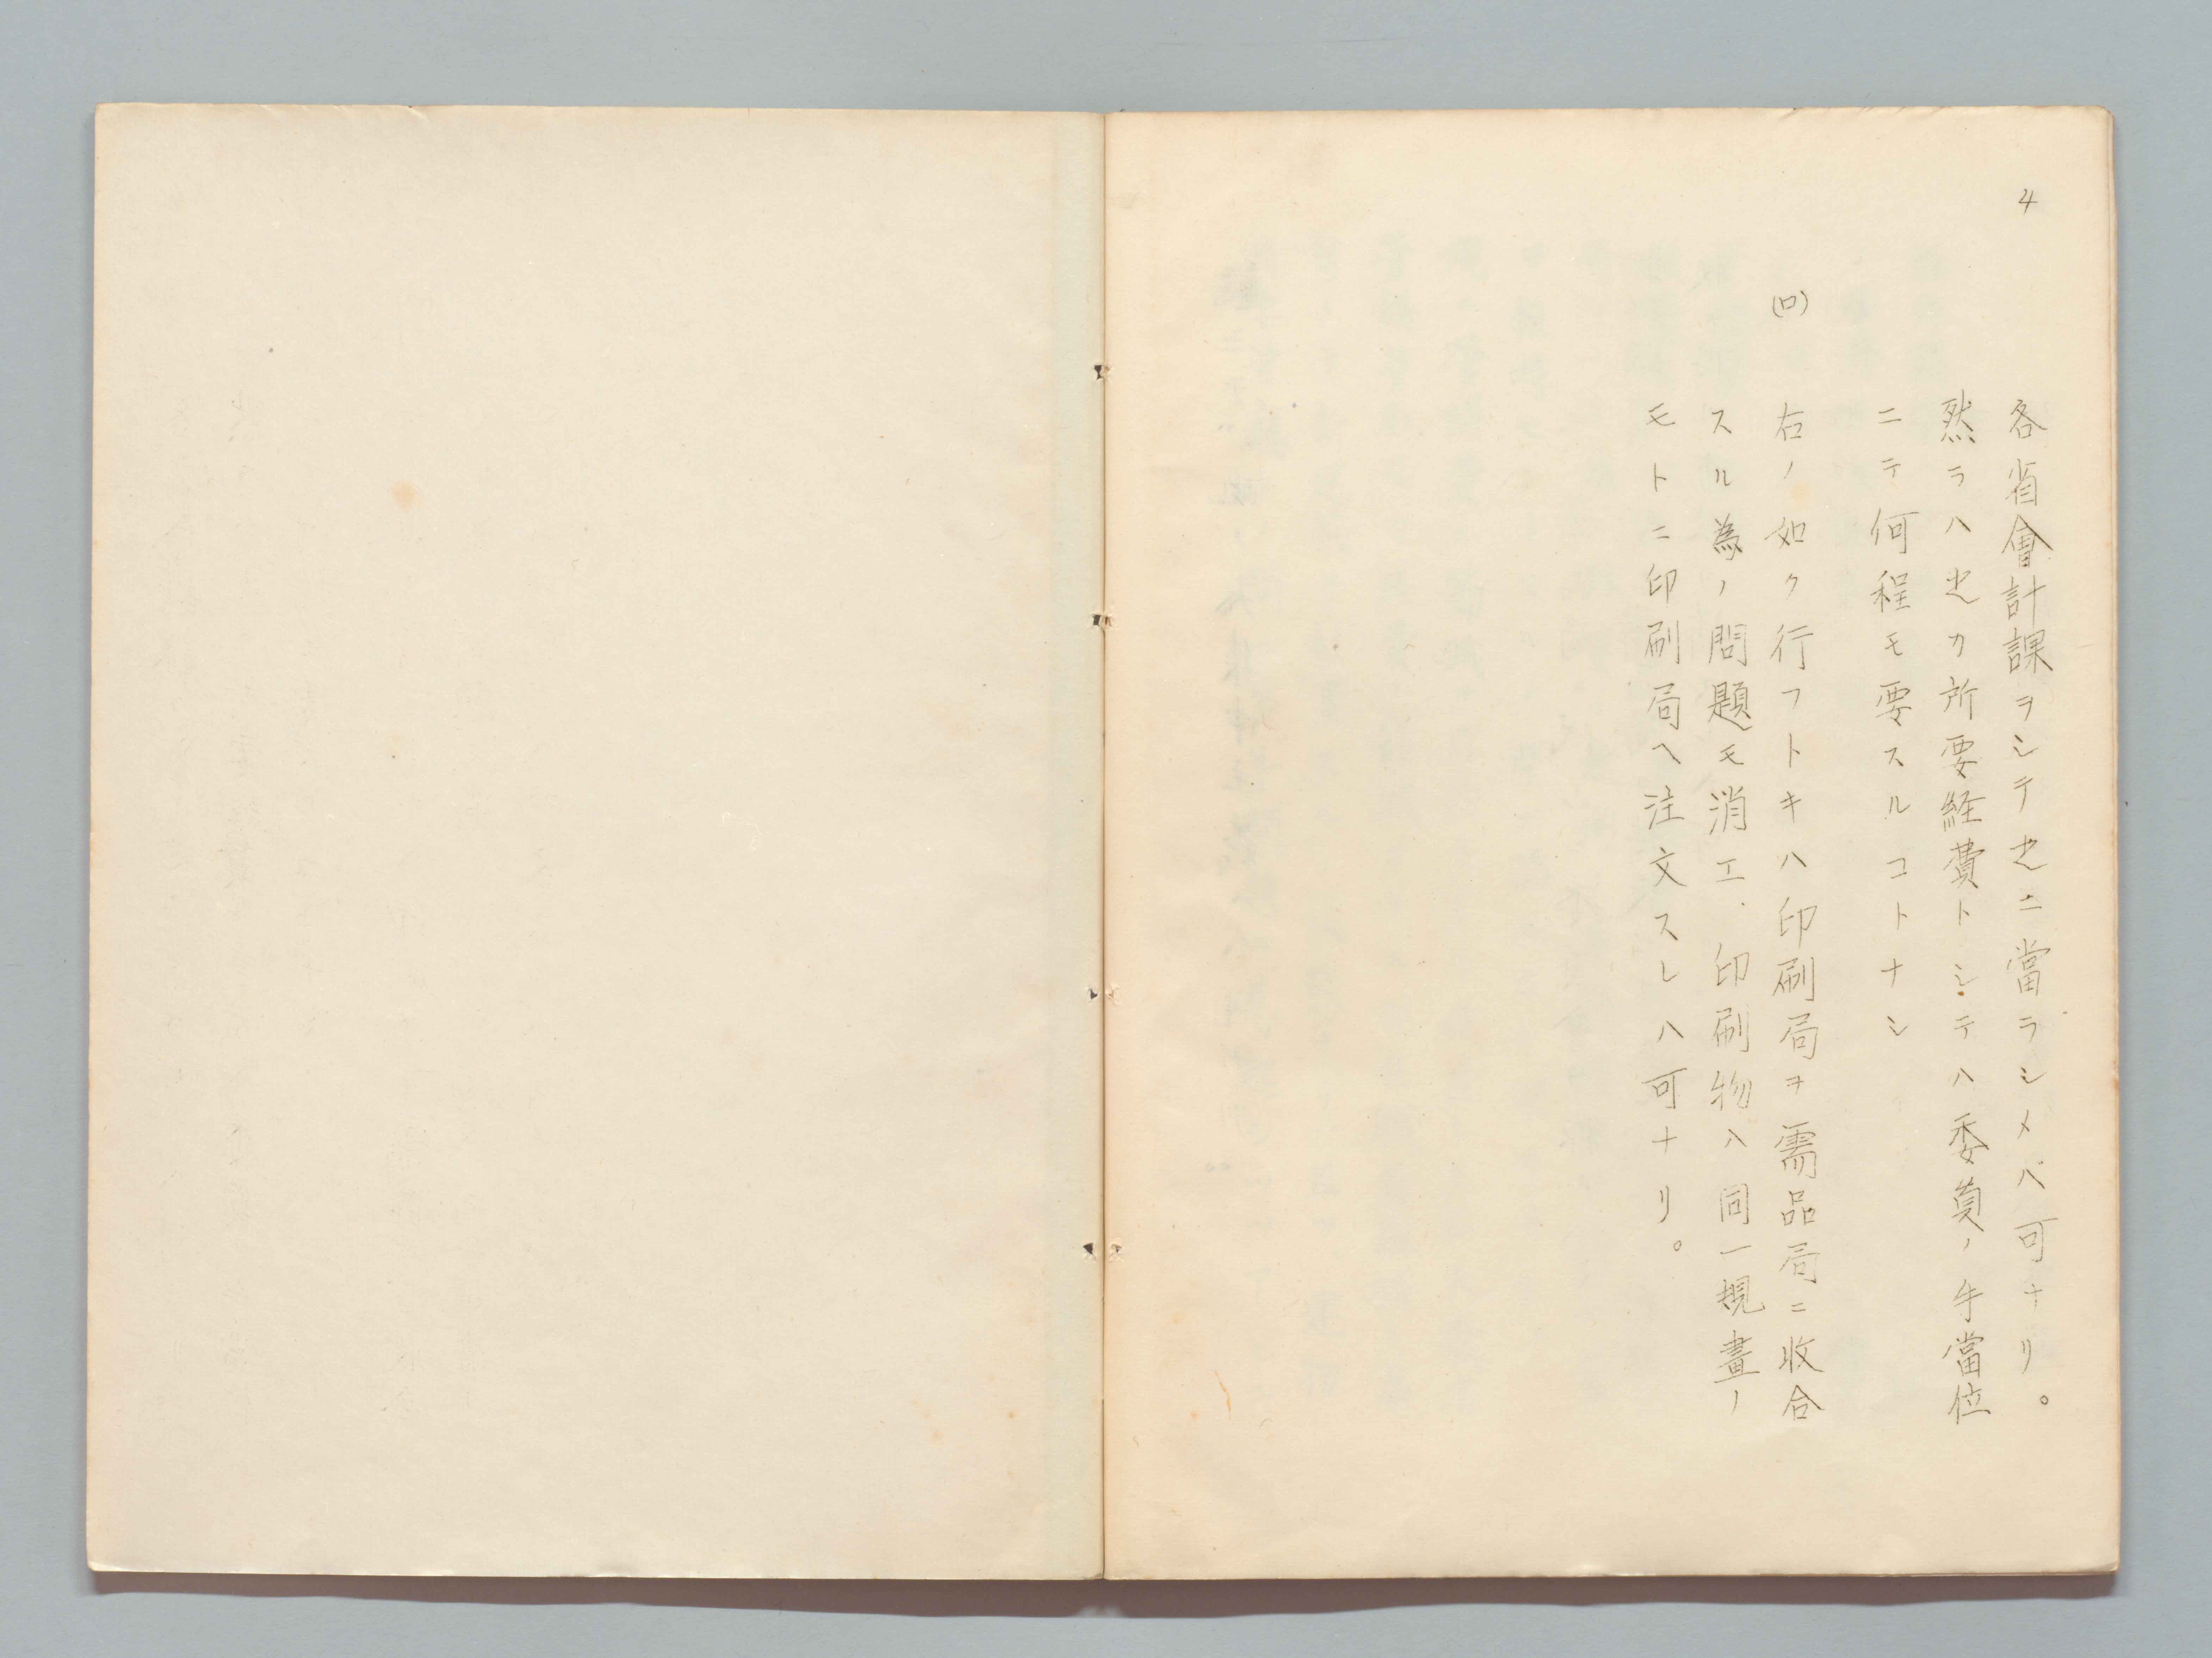 4
各省會計課ヲシテ之ニ當ラシメバ可ナリ。
然ラハ之カ所要経費トシテハ委員ノ手當位
ニテ何程モ要スルコトナシ
(ロ)
右ノ如ク行フトキハ印刷局ヲ需品局ニ收合
スル為ノ問題モ消エ、印刷物ハ同一規畫ノ
モトニ印刷局ヘ注文スレハ可ナリ。